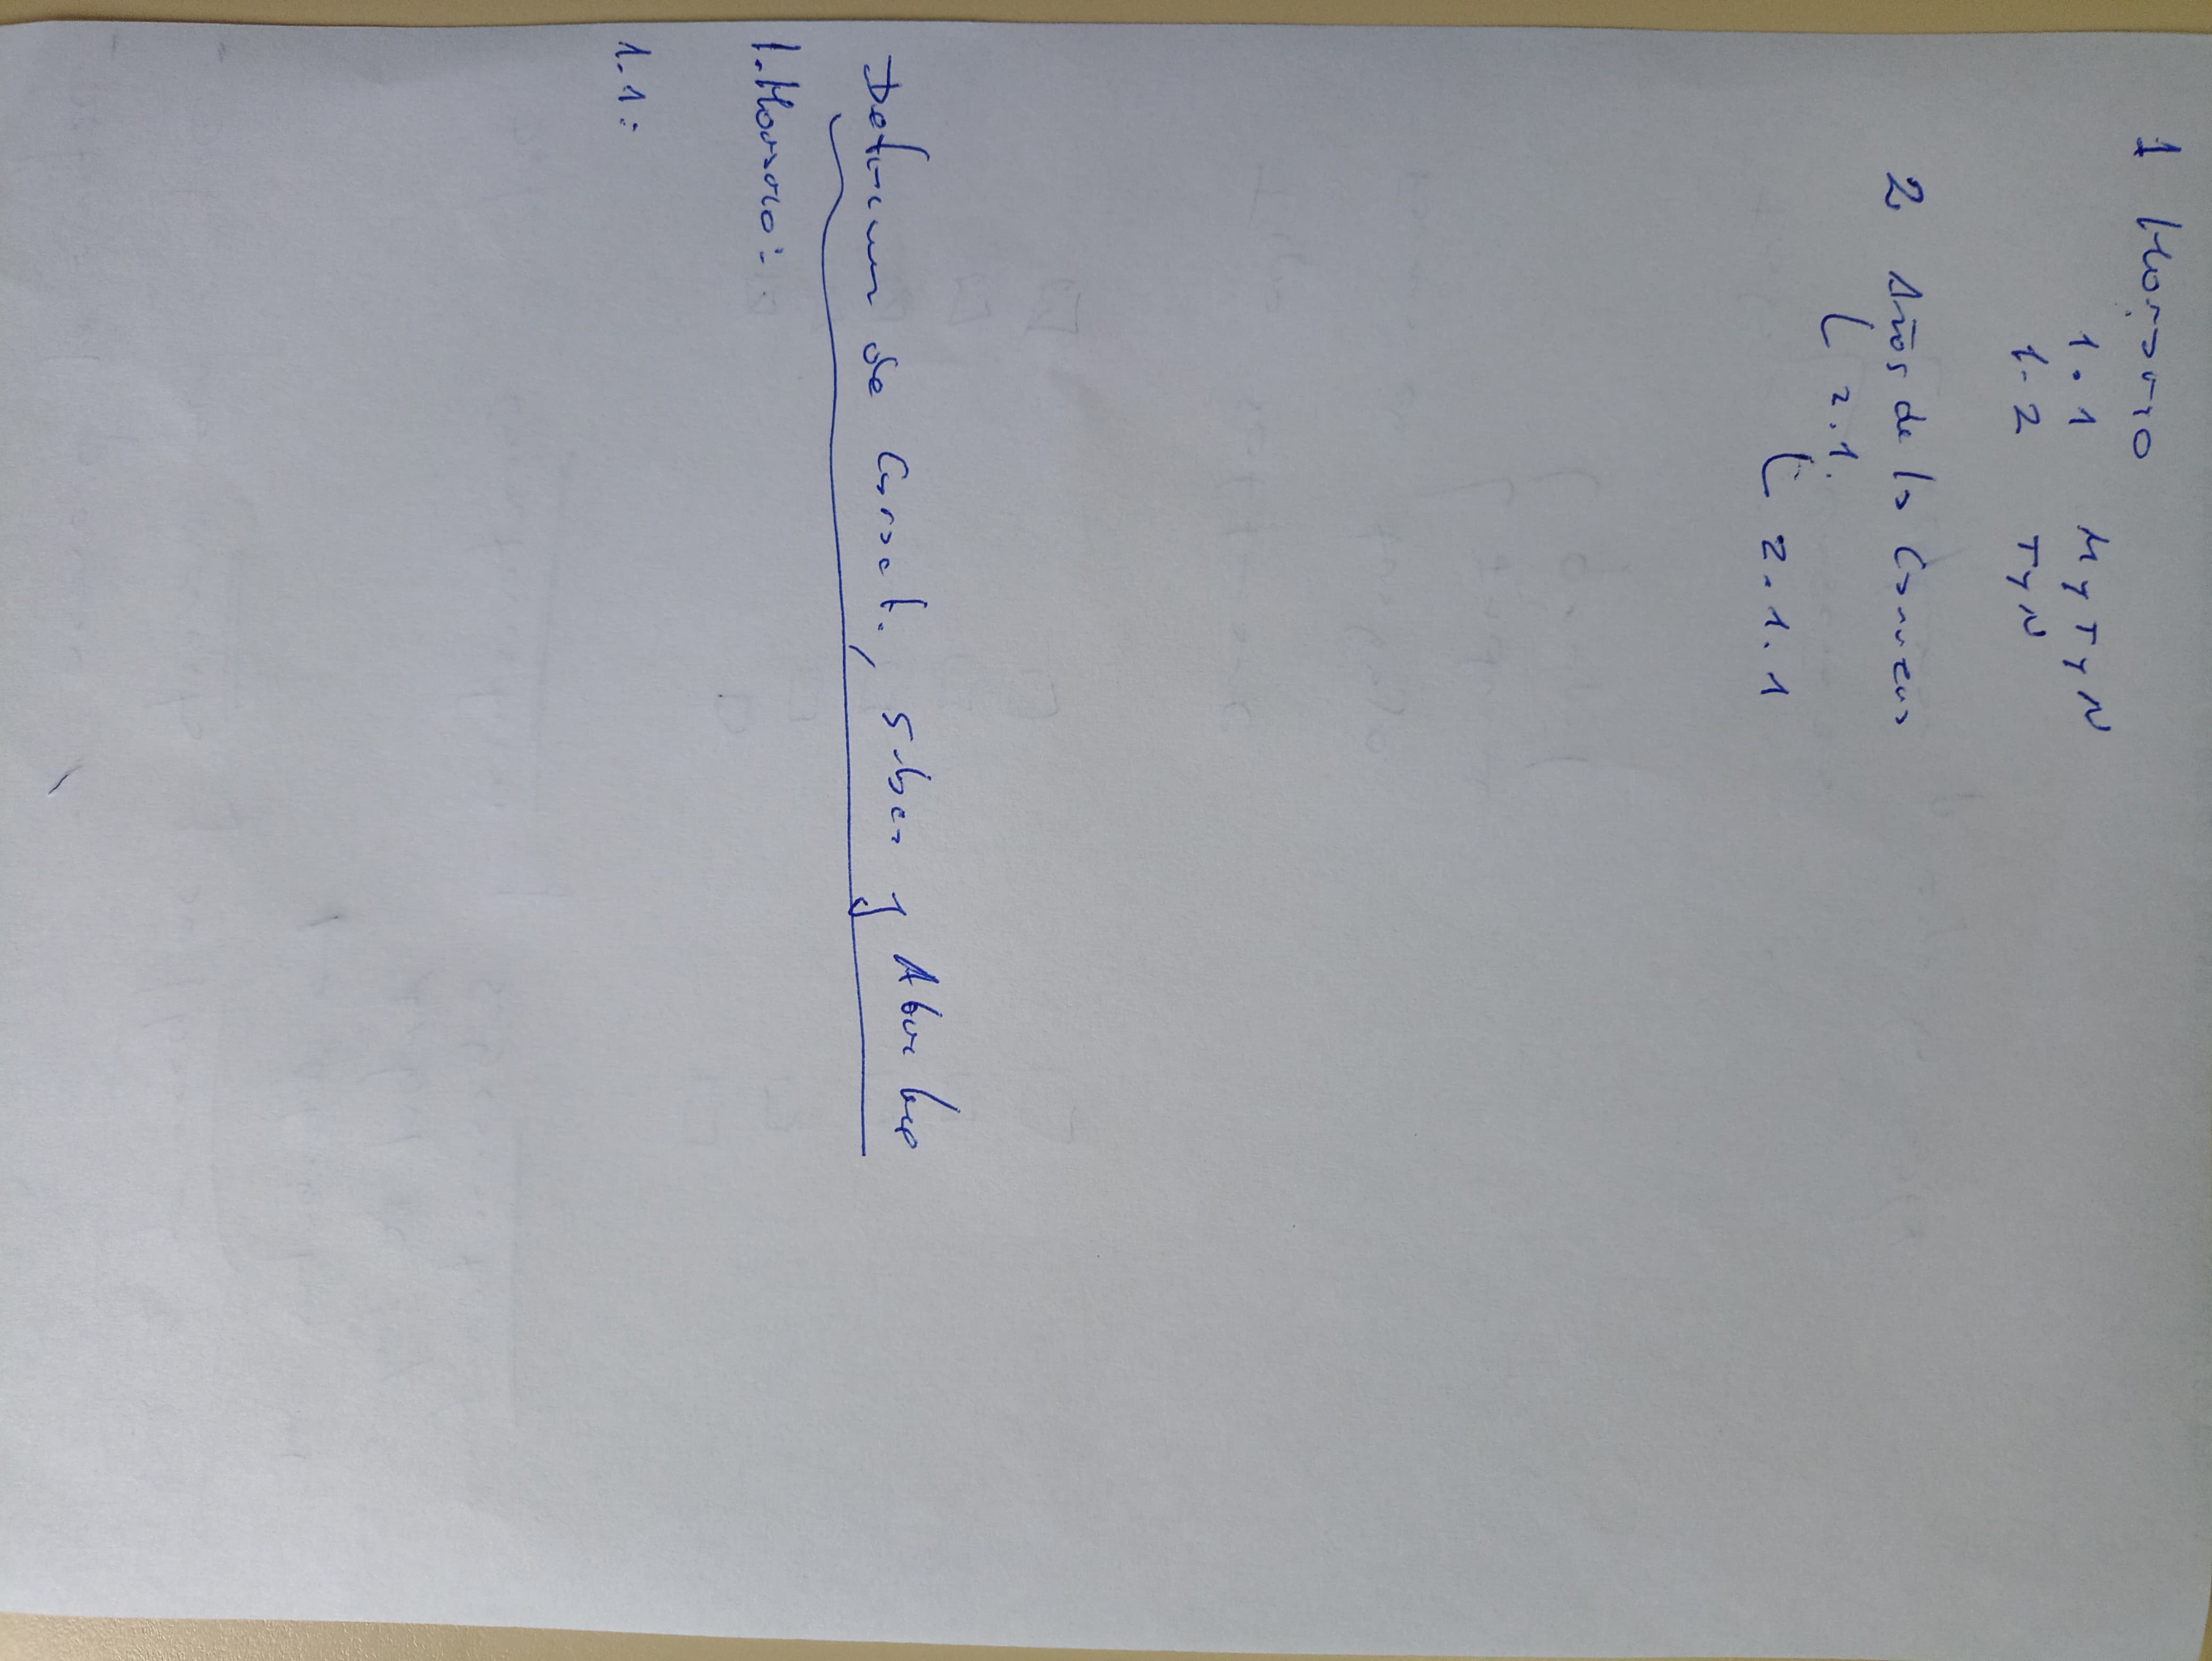 1 Horario
1.1 M y T y N
1.2 T y N
2 Años de la Carrera
2.1.
2.1.1
Definicion de Caract., Subca y Atributo
1. Horario:
1.1: